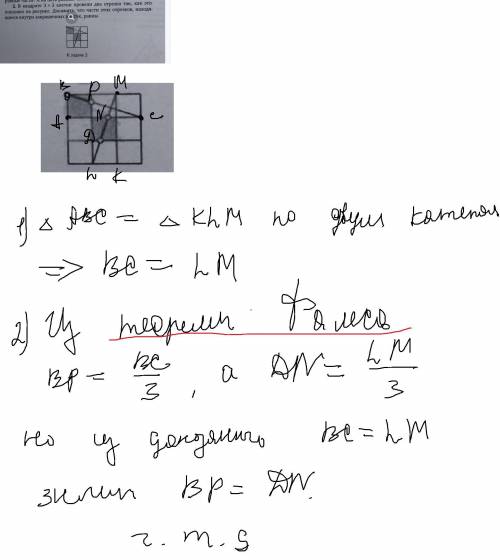 2. В квадрате 3 × 3 клетки провели два отрезка так, как это
показано на рисунке. Докажите, что части этих отрезков, находя-
щиеся внутри закрашенных клеток, равны.
К задаче 2
B P M
A N C
D
L K
1) △ ABC = △ KLM по двум катетам
=> BC = LM
2) Из теоремы Фалеса
BP = BC/3 , а DN = LM/3
но из доказанного BC = LM
значит BP = DN.
ч. т. д